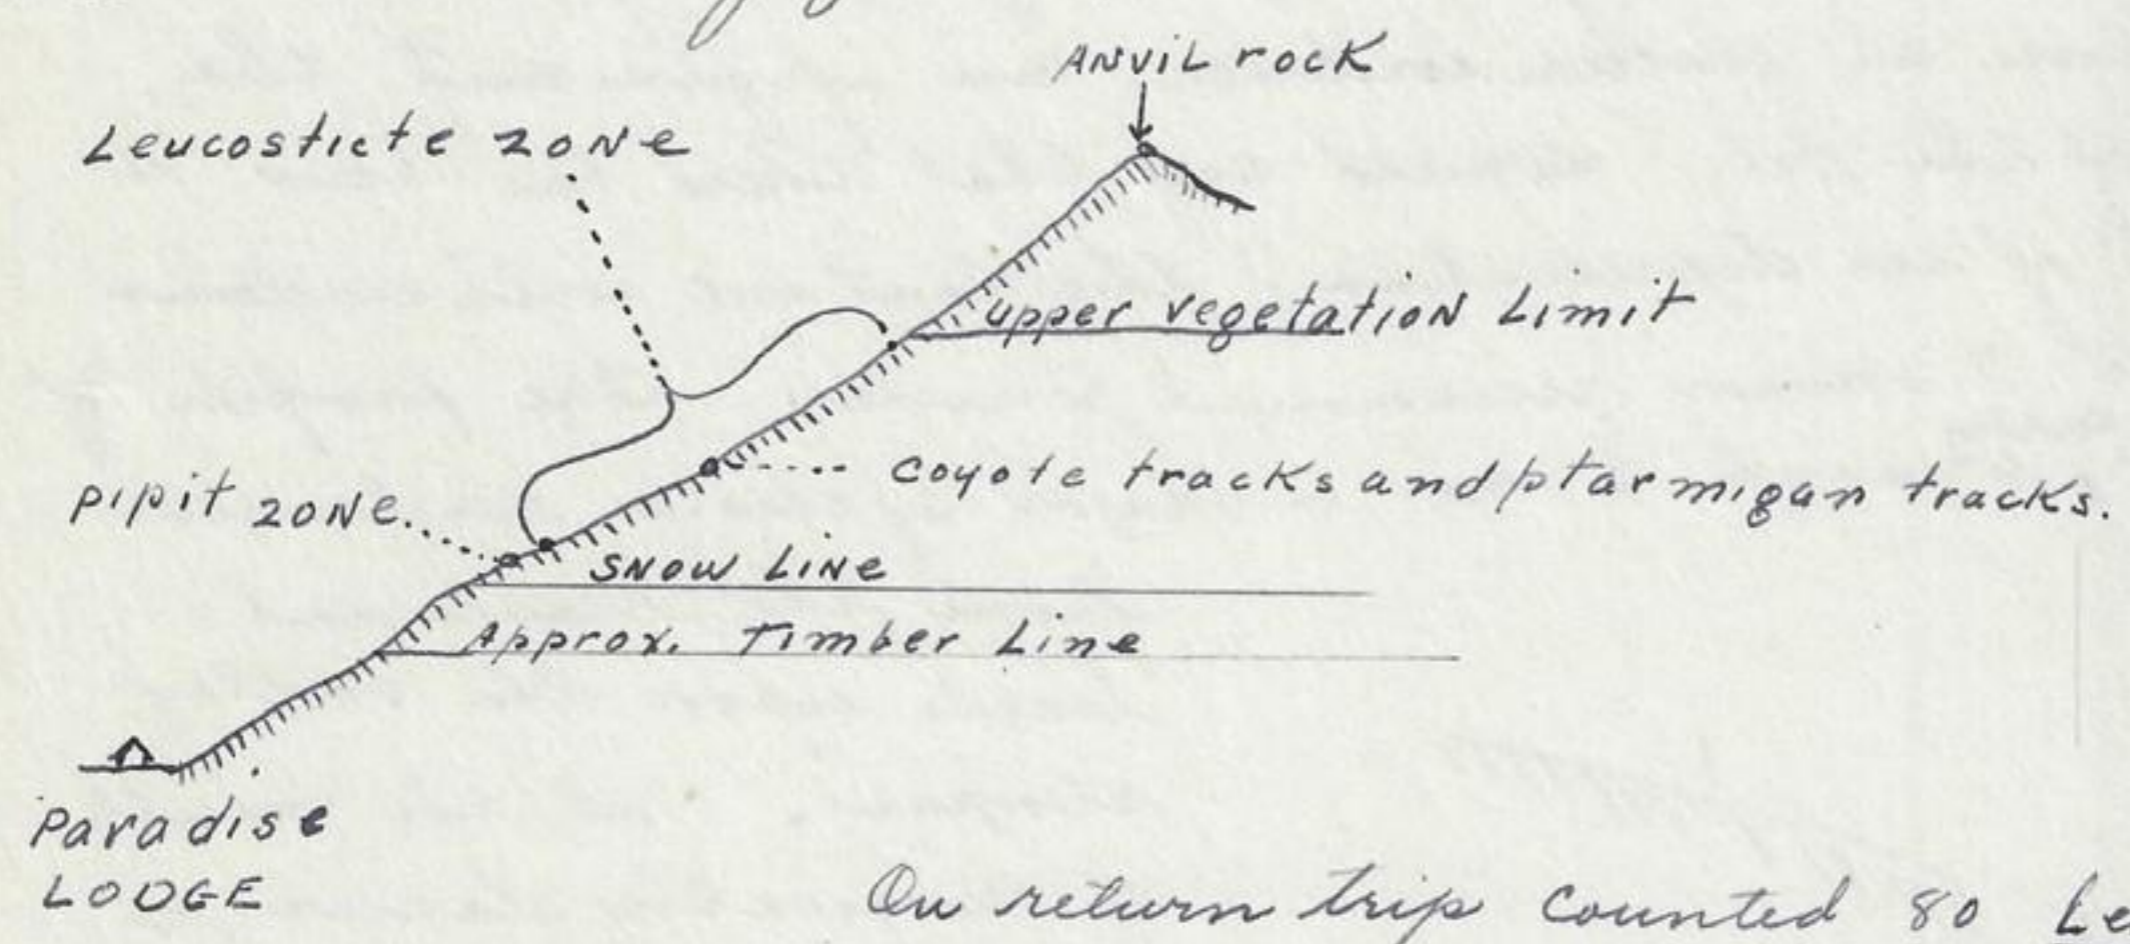 ANVIL rock
Leucosticte zone
upper vegetation Limit
coyote tracks and ptarmigan tracks.
pipit zone
SNOW LINE
Approx. Timber Line
Paradise
LODGE
On return trip counted 80 Le